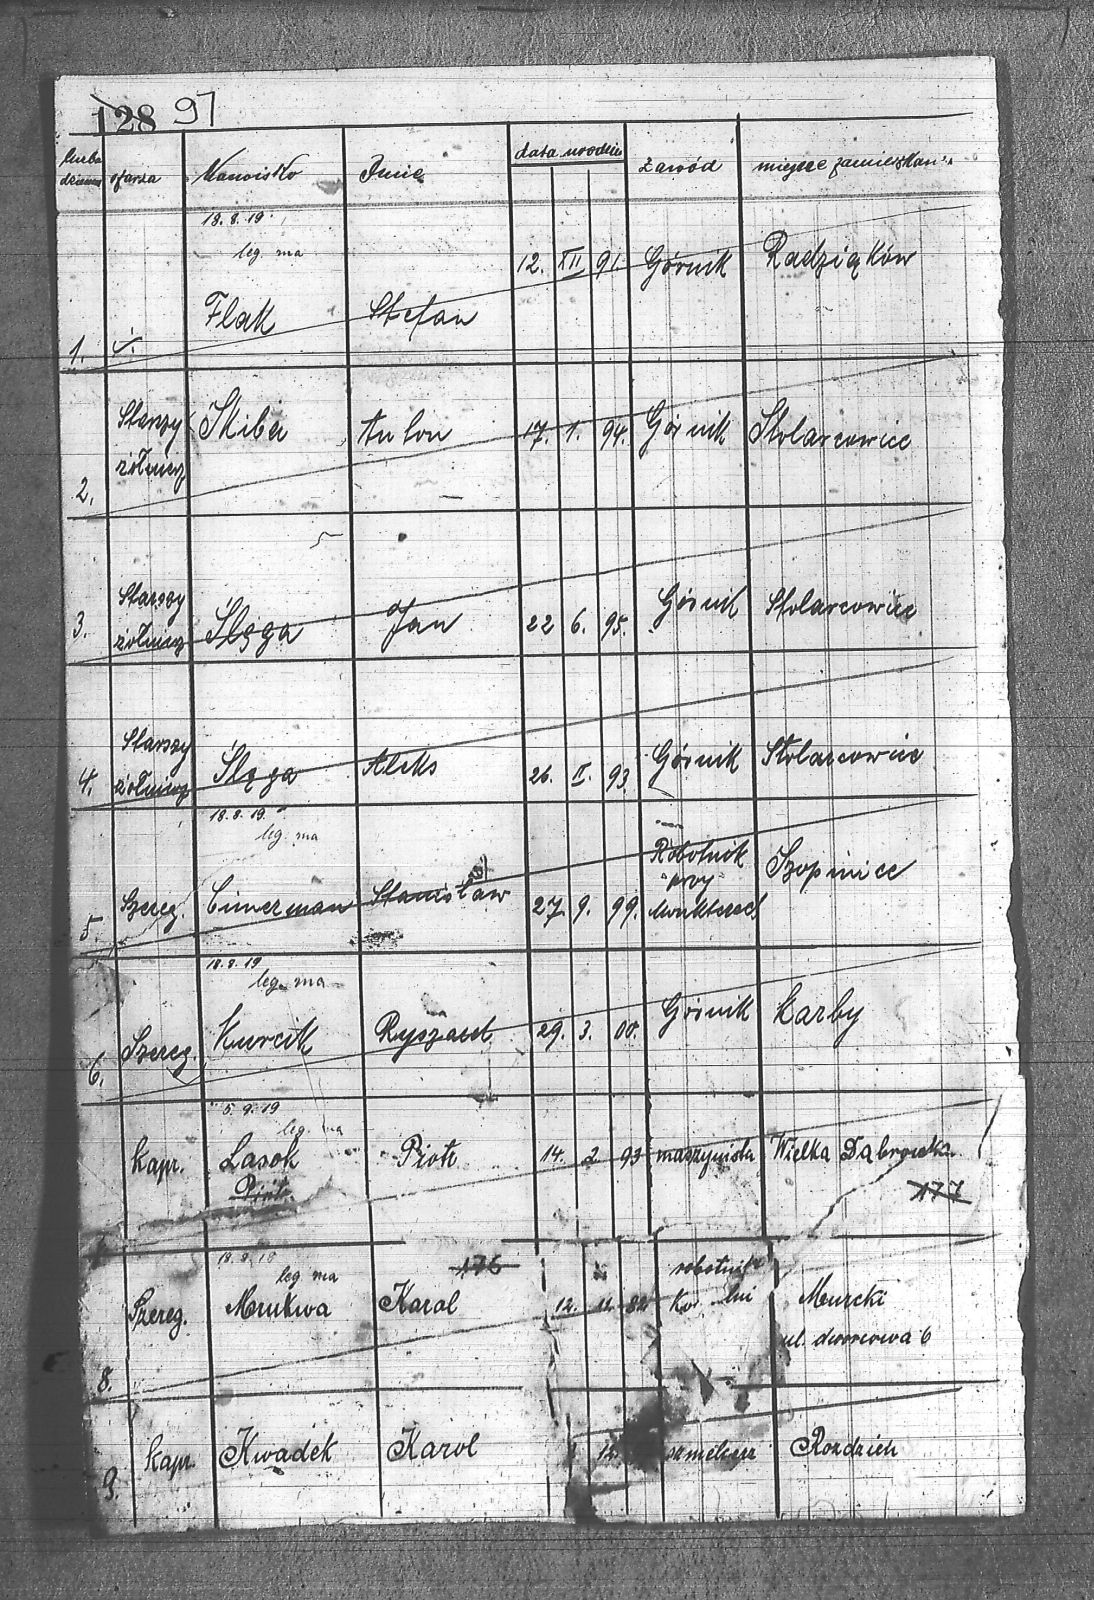 128 97
liczba data urodzin
dzienna szarża Nazwisko Imię Zawód miejsce zamieszkan
18.8.19
leg. ma
12. XII 91. Górnik Radziąków
Flak Stefan
1.
Starszy Skiba Anton 17. 1. 94. Górnik Stolarcowice
żołnierz
2.
Starszy Górnik Stolarcowice
3. żołnierz Ślęga Jan 22 6. 95.
Starszy
4. żołnierz Ślęga Aleks 26. II. 93. Górnik Stolarcowice
18.8.19.
leg. ma
Robotnik Szopinice
przy
5. Szereg. Cimerman Stanisław 27. 9. 99.
18.8.19
leg. ma
6. Szereg. Kurcik Ryszard 29. 3. 00. Górnik Karby
5.9.19
leg. ma
kapr. Lasok Piotr 14. 2 93 maszynista Wielka Dąbrowka
Piotr 177
18.8.19
leg. ma 176 robotnik
Szereg. Mrukwa Karol 12. 11. 82 Murcki
ul. dworcowa 6
8.
kapr. Kwadek Karol 12 Rozdzień
9.